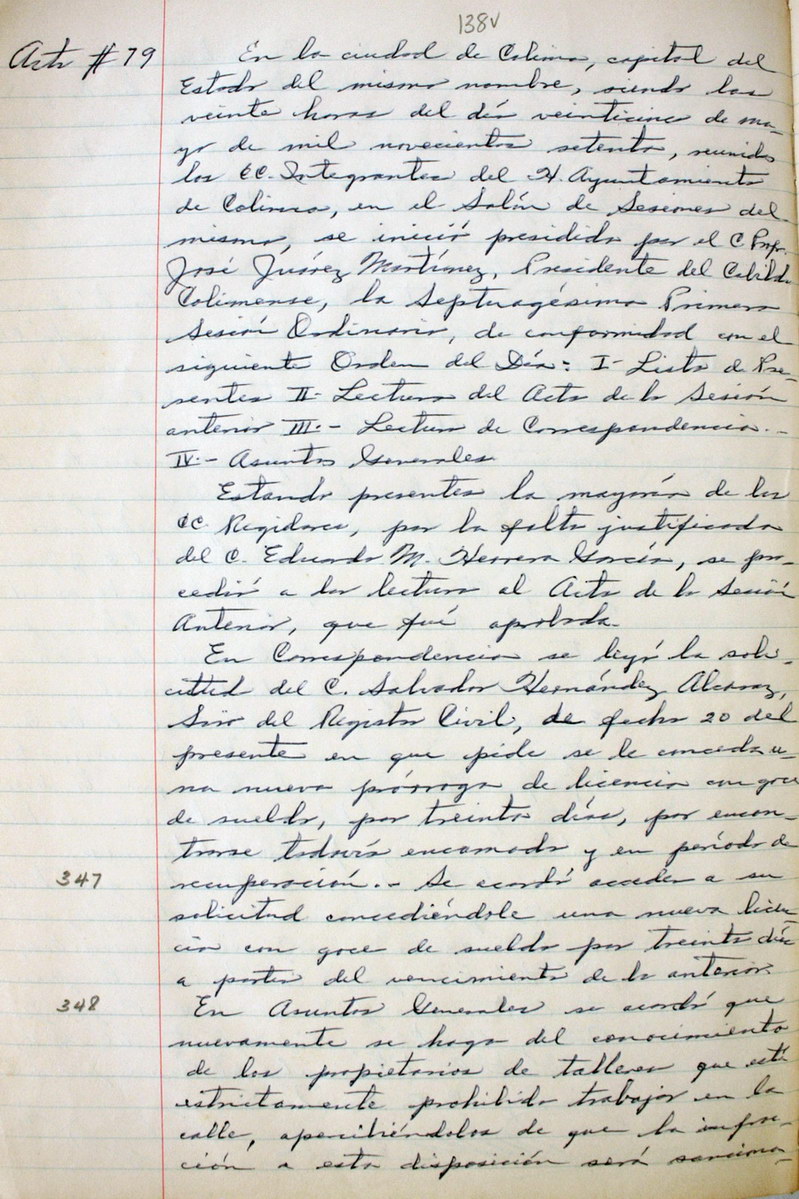 138v
Acta # 79
En la ciudad de Colima, capital del
Estado del mismo nombre, siendo las
veinte horas del día veinticinco de ma-
yo de mil novecientos setenta, reunidos
los CC. Integrantes del H. Ayuntamiento
de Colima, en el Salón de Sesiones del
mismo, se inició presidida por el C. Profr.
José Juárez Martínez, Presidente del Cabildo
Colimense, la Septuagésima Primera
Sesión Ordinaria, de conformidad con el
siguiente Orden del Día: I- Lista de Pre-
sentes II- Lectura del Acta de la Sesión
anterior III.- Lectura de Correspondencia.-
IV.- Asuntos Generales
Estando presentes la mayoría de los
CC. Regidores, por la falta justificada
del C. Eduardo M. Herrera García, se pro-
cedió a la lectura al Acta de la Sesión
Anterior, que fué aprobada.
En Correspondencia se leyó la soli-
citud del C. Salvador Hernández Alcaraz,
Srio del Registro Civil, de fecha 20 del
presente en que pide se le conceda u-
na nueva prórroga de licencia con goce
de sueldo, por treinta días, por encon-
trarse todavía encamado y en período de
347
recuperación.- Se acordó acceder a su
solicitud concediéndole una nueva licen-
cia con goce de sueldo por treinta días
a partir del vencimiento de la anterior.
348
En Asuntos Generales se acordó que
nuevamente se haga del conocimiento
de los propietarios de talleres que está
estrictamente prohibido trabajar en la
calle, apercibiéndolos de que la infra-
cción a esta disposición será sanciona-